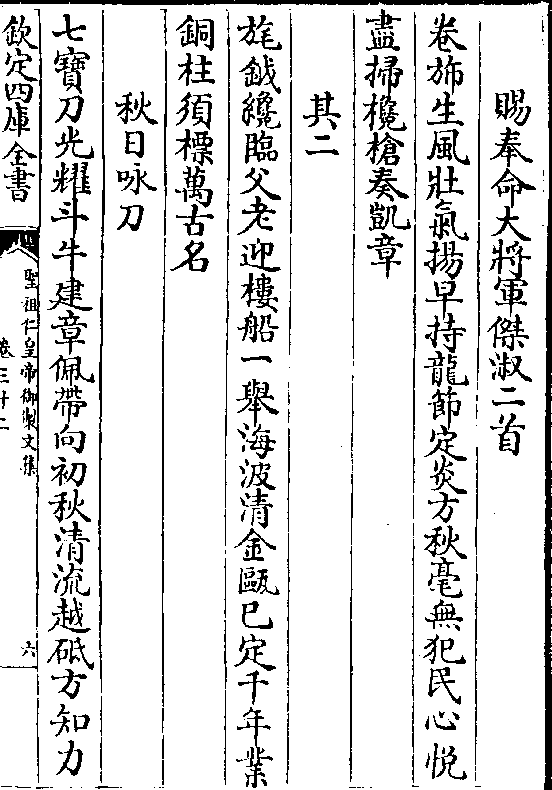 賜奉命大將軍傑淑二首
卷斾生風壯氣揚早持龍節定炎方秋毫無犯民心悅
盡掃欃槍奏凱章
其二
旄鉞纔臨父老迎樓船一舉海波清金甌已定千年業
銅柱須標萬古名
秋日咏刀
七寶刀光耀斗牛建章佩帶向初秋清流越砥方知力
欽定四庫全書
聖祖仁皇帝御製文集
卷三十二
六